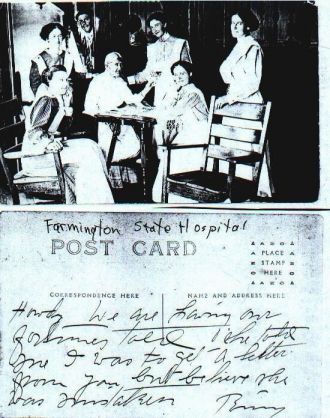 Farmington State Hospital
POST CARD
PLACE
STAMP
HERE
CORRESPONDENCE HERE
NAME AND ADDRESS HERE
Howdy We are having our
fortunes told. She told
me I was to get a letter
from you, but believe she
was mistaken